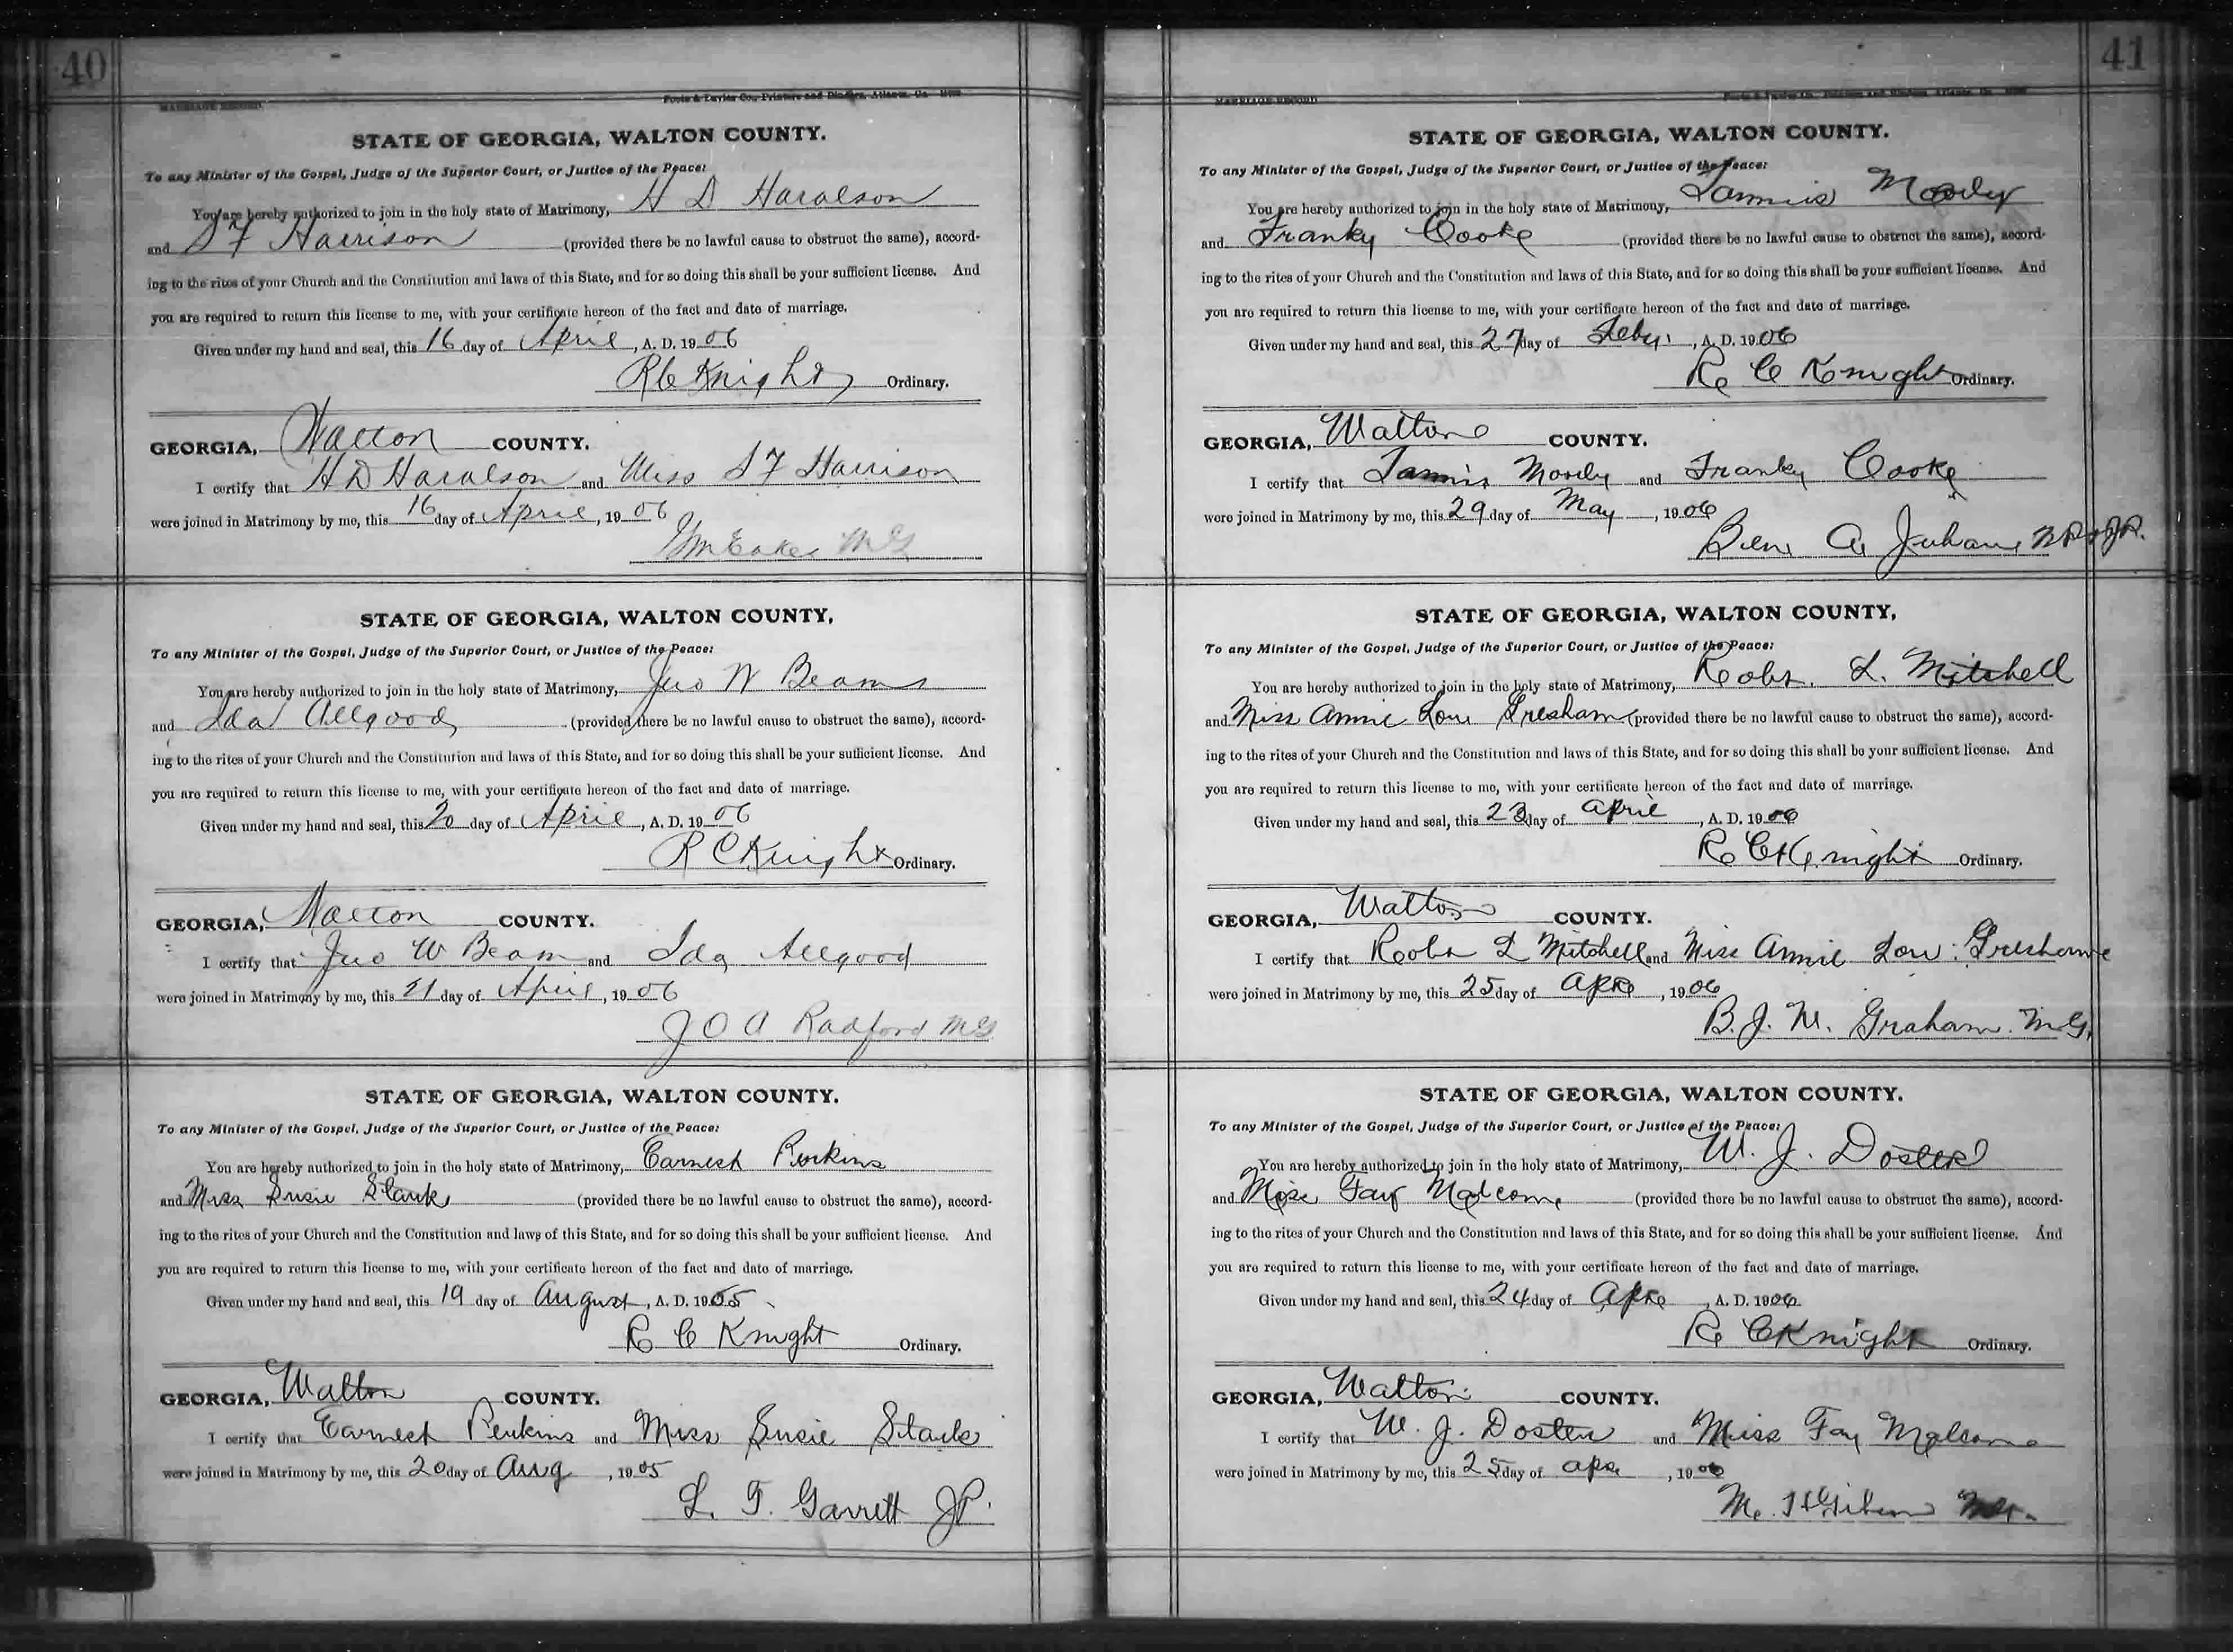 40
MARRIAGE RECORD.
Foote & Davies Co., Printers and Binders, Atlanta, Ga.
STATE OF GEORGIA, WALTON COUNTY.
To any Minister of the Gospel, Judge of the Superior Court, or Justice of the Peace:
You are hereby authorized to join in the holy state of Matrimony, H D Haralson
and S F Harrison (provided there be no lawful cause to obstruct the same), accord-
ing to the rites of your Church and the Constitution and laws of this State, and for so doing this shall be your sufficient license. And
you are required to return this license to me, with your certificate hereon of the fact and date of marriage.
Given under my hand and seal, this 16 day of April, A. D. 1906
R C Knight Ordinary.
GEORGIA, Walton COUNTY.
I certify that H D Haralson and Miss S F Harrison
were joined in Matrimony by me, this 16 day of April, 1906
MG
STATE OF GEORGIA, WALTON COUNTY.
To any Minister of the Gospel, Judge of the Superior Court, or Justice of the Peace:
You are hereby authorized to join in the holy state of Matrimony, Jno W Beam
and Ida Allgood (provided there be no lawful cause to obstruct the same), accord-
ing to the rites of your Church and the Constitution and laws of this State, and for so doing this shall be your sufficient license. And
you are required to return this license to me, with your certificate hereon of the fact and date of marriage.
Given under my hand and seal, this 20 day of April, A. D. 1906
R C Knight Ordinary.
GEORGIA, Walton COUNTY.
I certify that Jno W Beam and Ida Allgood
were joined in Matrimony by me, this 21 day of April, 1906
J O A Radford MG
STATE OF GEORGIA, WALTON COUNTY.
To any Minister of the Gospel, Judge of the Superior Court, or Justice of the Peace:
You are hereby authorized to join in the holy state of Matrimony, Earnest Perkins
and Miss Susie Stark (provided there be no lawful cause to obstruct the same), accord-
ing to the rites of your Church and the Constitution and laws of this State, and for so doing this shall be your sufficient license. And
you are required to return this license to me, with your certificate hereon of the fact and date of marriage.
Given under my hand and seal, this 19 day of August, A. D. 1905
R C Knight Ordinary.
GEORGIA, Walton COUNTY.
I certify that Earnest Perkins and Miss Susie Stark
were joined in Matrimony by me, this 20 day of Aug, 1905
L. T. Garrett JP.
41
MARRIAGE RECORD
STATE OF GEORGIA, WALTON COUNTY.
To any Minister of the Gospel, Judge of the Superior Court, or Justice of the Peace:
You are hereby authorized to join in the holy state of Matrimony, Moody
and Franky Cooke (provided there be no lawful cause to obstruct the same), accord-
ing to the rites of your Church and the Constitution and laws of this State, and for so doing this shall be your sufficient license. And
you are required to return this license to me, with your certificate hereon of the fact and date of marriage.
Given under my hand and seal, this 27 day of Feby, A. D. 1906
R C Knight Ordinary.
GEORGIA, Walton COUNTY.
I certify that Moody and Franky Cooke
were joined in Matrimony by me, this 29 day of May, 1906
A.
STATE OF GEORGIA, WALTON COUNTY.
To any Minister of the Gospel, Judge of the Superior Court, or Justice of the Peace:
You are hereby authorized to join in the holy state of Matrimony, Robt. L. Mitchell
and Miss Annie Lou Gresham (provided there be no lawful cause to obstruct the same), accord-
ing to the rites of your Church and the Constitution and laws of this State, and for so doing this shall be your sufficient license. And
you are required to return this license to me, with your certificate hereon of the fact and date of marriage.
Given under my hand and seal, this 23 day of April, A. D. 1906
R C Knight Ordinary.
GEORGIA, Walton COUNTY.
I certify that Robt L Mitchell and Miss Annie Lou Gresham
were joined in Matrimony by me, this 25 day of Apr, 1906
B. J. W. Graham. M.G.
STATE OF GEORGIA, WALTON COUNTY.
To any Minister of the Gospel, Judge of the Superior Court, or Justice of the Peace:
You are hereby authorized to join in the holy state of Matrimony, W. J. Doster
and Miss Fay Malcom (provided there be no lawful cause to obstruct the same), accord-
ing to the rites of your Church and the Constitution and laws of this State, and for so doing this shall be your sufficient license. And
you are required to return this license to me, with your certificate hereon of the fact and date of marriage.
Given under my hand and seal, this 24 day of Apr, A. D. 1906
R C Knight Ordinary.
GEORGIA, Walton COUNTY.
I certify that W. J. Doster and Miss Fay Malcom
were joined in Matrimony by me, this 25 day of Apr, 1906